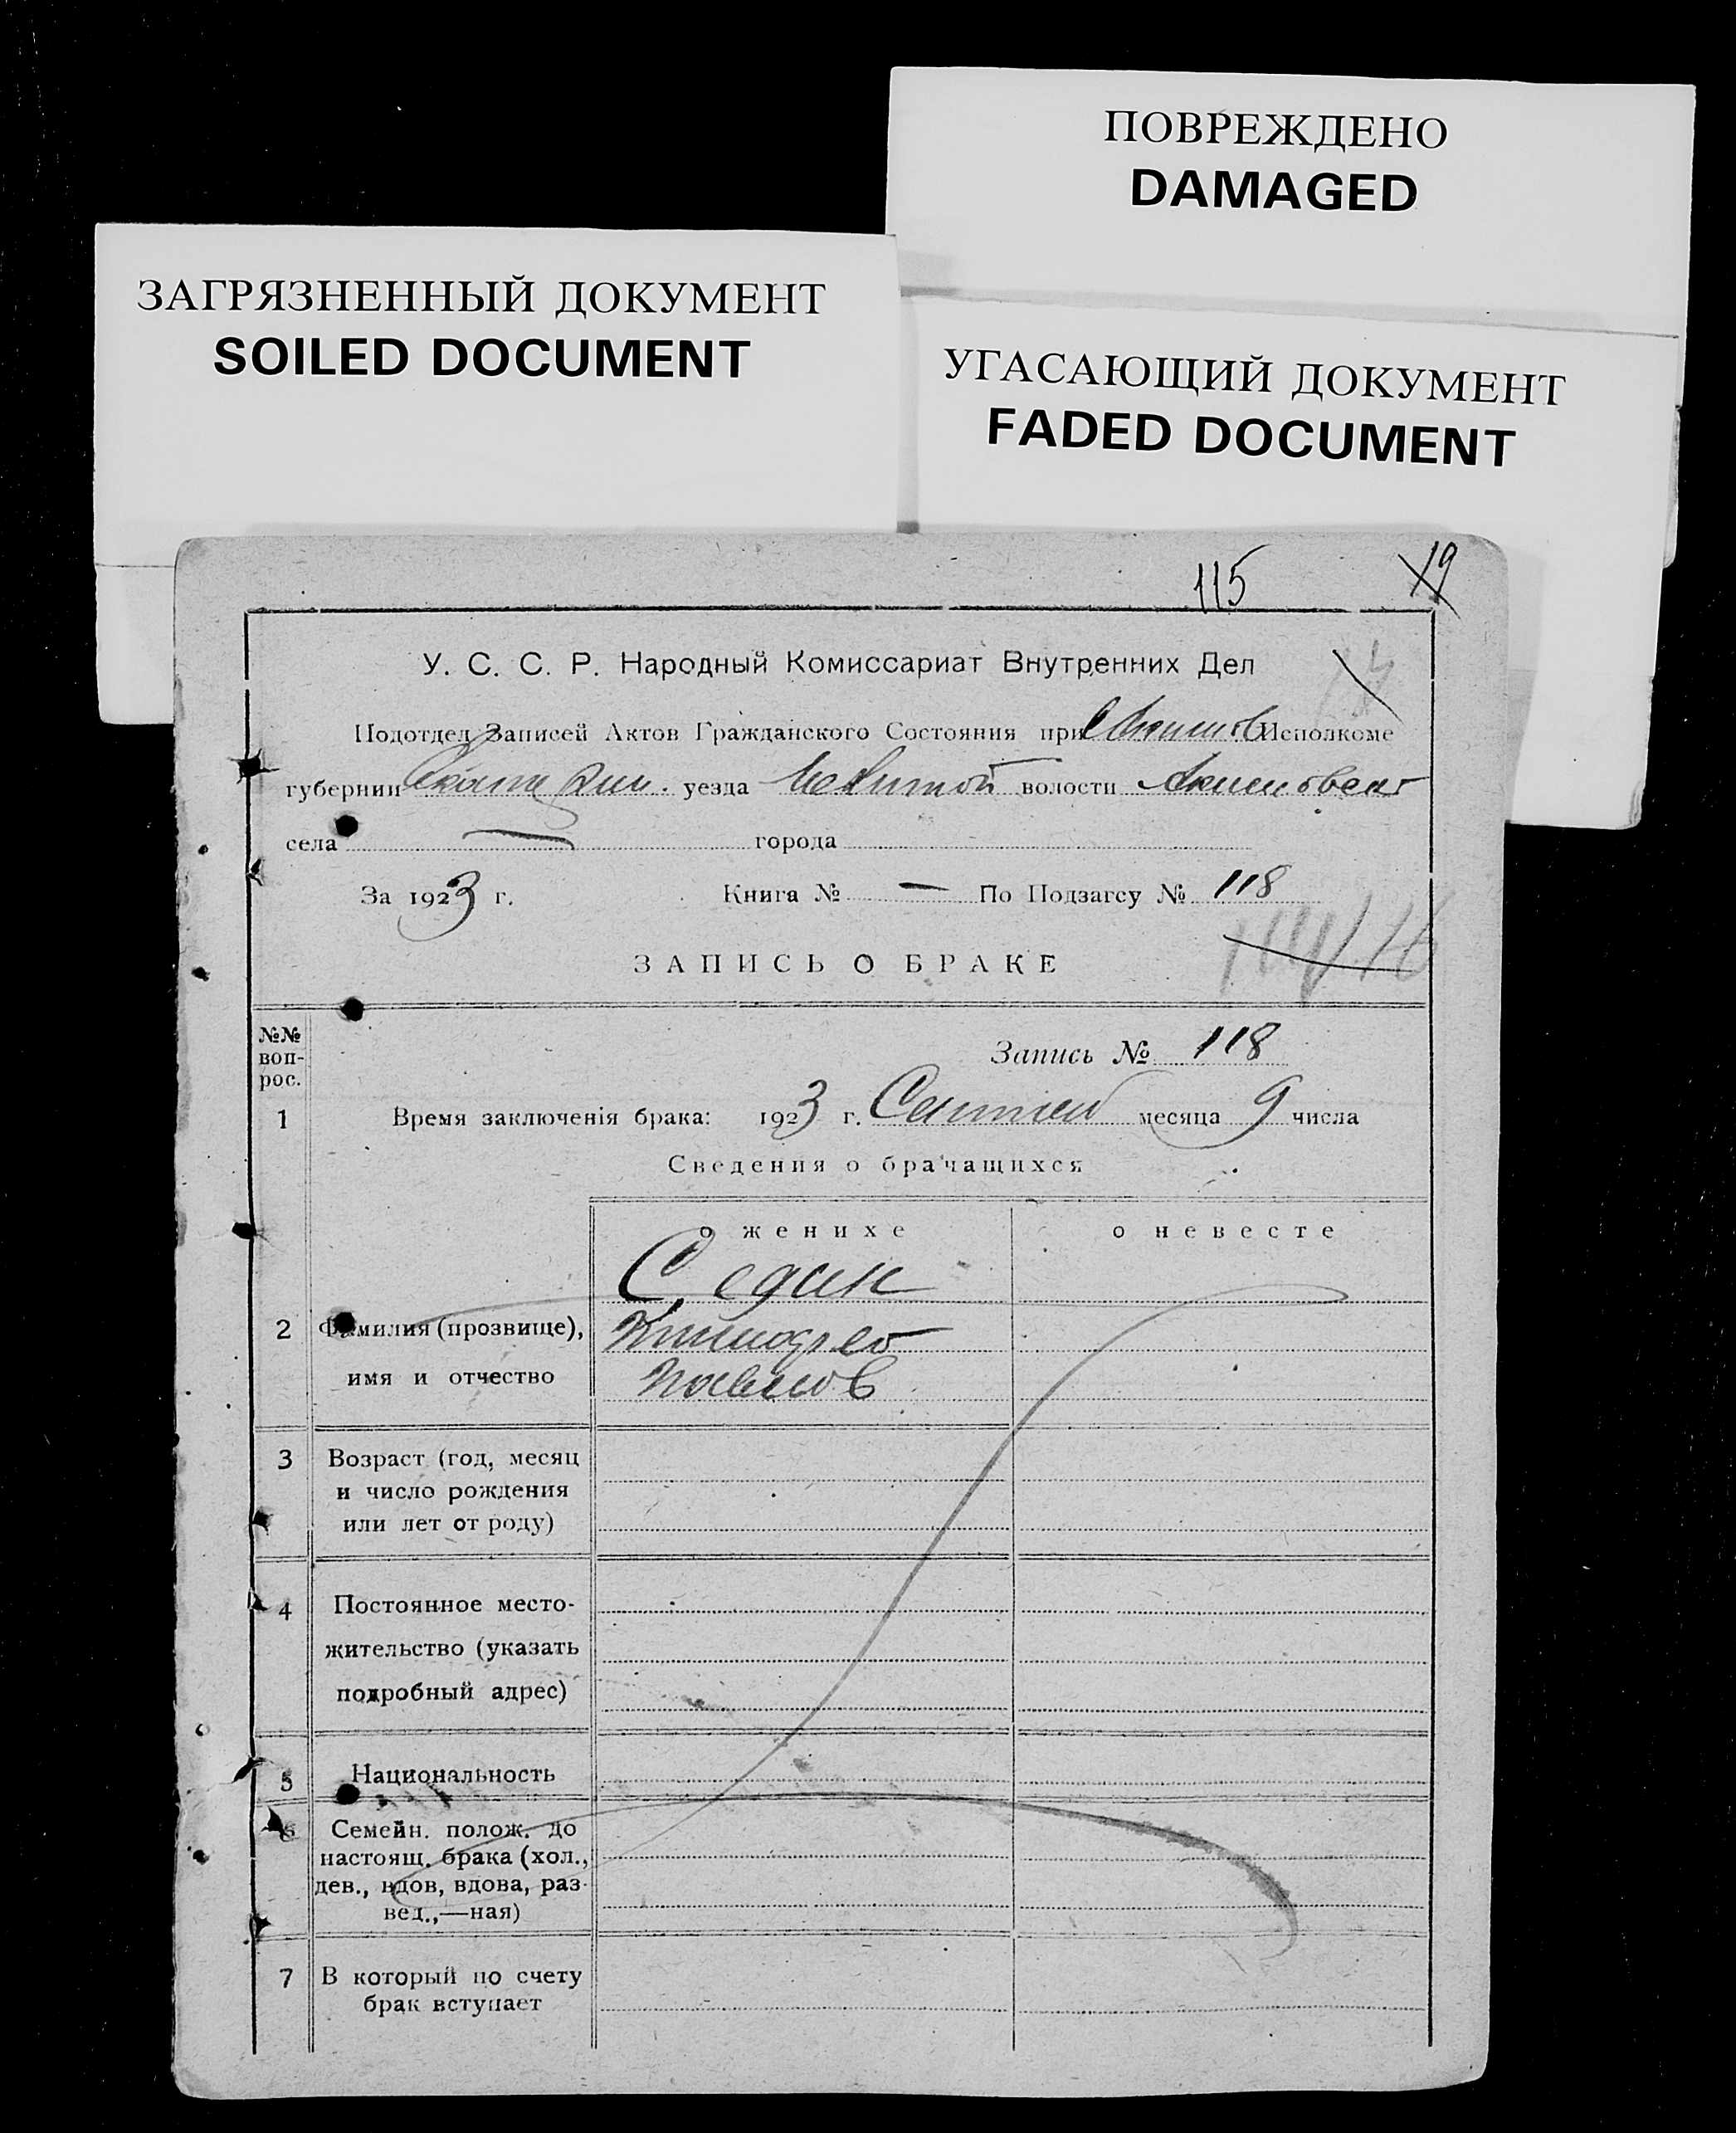 ПОВРЕЖДЕНО
DAMAGED
ЗАГРЯЗНЕННЫЙ ДОКУМЕНТ
SOILED DOCUMENT
УГАСАЮЩИЙ ДОКУМЕНТ
FADED DOCUMENT
115 19
У. С. С. Р. Народный Комиссариат Внутренних Дел
Подотдел Записей Актов Гражданского Состояния при Исполкоме
губернии уезда волости
села — города
За 1923 г. Книга № — По Подзагсу № 118
ЗАПИСЬ О БРАКЕ
№№ воп-рос.
Запись № 118
1 Время заключенія брака: 1923 г. месяца 9 числа
Сведения о брачащихся
о женихе о невесте
Седин
2 Фамилия (прозвище),
имя и отчество
3 Возраст (год, месяц
и число рождения
или лет от роду)
4 Постоянное место-
жительство (указать
подробный адрес)
5 Национальность
6 Семейн. полож. до
настоящ. брака (хол.,
дев., вдов, вдова, раз-
вед.,—ная)
7 В который по счету
брак вступает